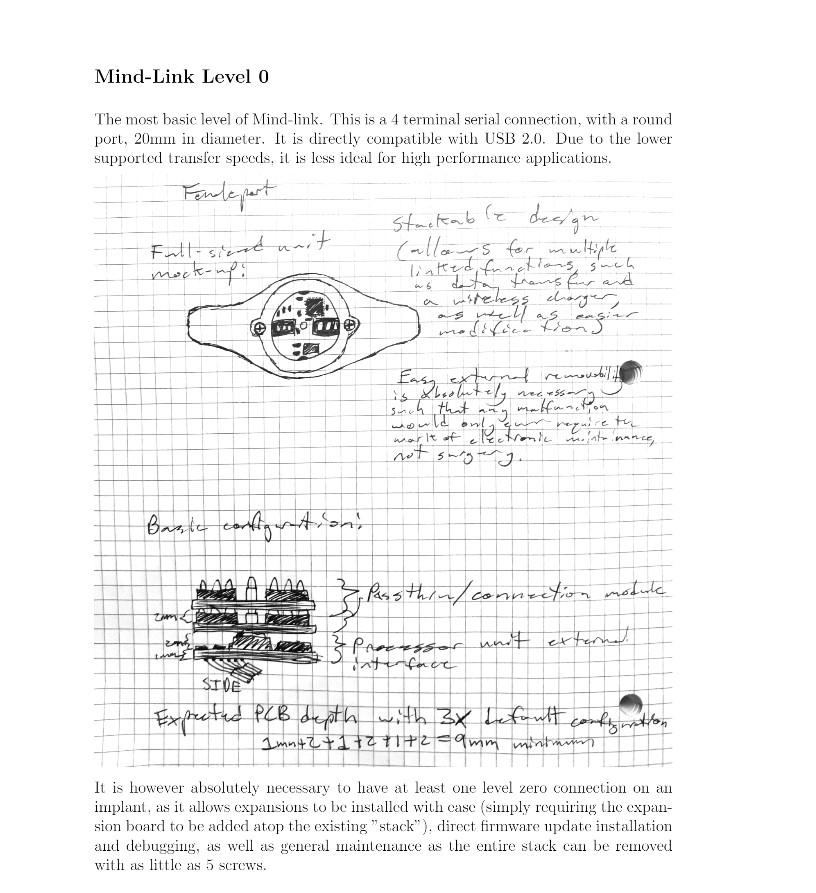 Mind-Link Level 0
The most basic level of Mind-link. This is a 4 terminal serial connection, with a round
port, 20mm in diameter. It is directly compatible with USB 2.0. Due to the lower
supported transfer speeds, it is less ideal for high performance applications.
Stackable design
Full-sized unit
mock-up:
(allows for multiple
linked functions, such
as data transfer and
a wireless charger,
as well as easier
modification)
Easy external removability
is absolutely necessary
such that any malfunction
would only ever require the
work of electronic maintenance,
not surgery.
Basic configuration:
Passthru/connection module
2mm
2mm
1mm
Processor unit external
interface
SIDE
Expected PCB depth with 3X default configuration
1mm+2+1+2+1+2=9mm minimum
It is however absolutely necessary to have at least one level zero connection on an
implant, as it allows expansions to be installed with ease (simply requiring the expan-
sion board to be added atop the existing "stack"), direct firmware update installation
and debugging, as well as general maintenance as the entire stack can be removed
with as little as 5 screws.